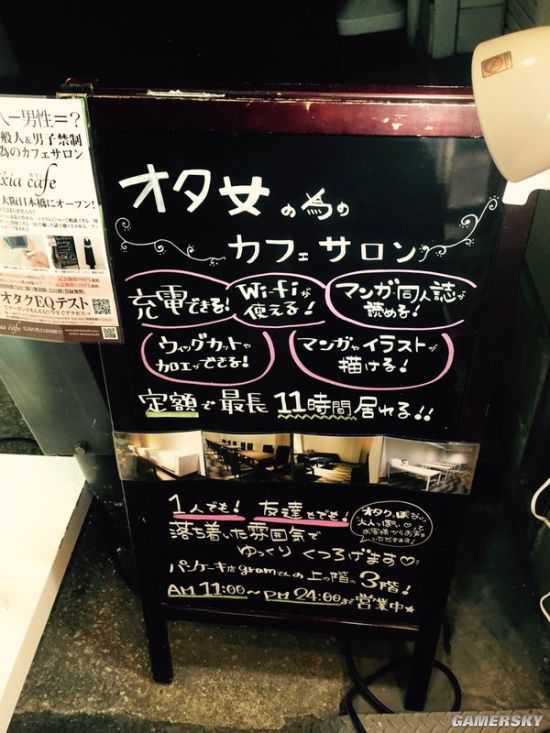 オタ女の為の
カフェサロン
充電できる!
Wi-fiが
使える!
マンガ同人誌が
読める!
ウィッグカットや
加工ができる!
マンガやイラストが
描ける!
定額で最長11時間居れる!!
1人でも! 友達とでも!
落ち着いた雰囲気で
ゆっくりくつろげます♡
パンケーキ店gramさんの上の階の3階!
AM 11:00〜PM 24:00まで営業中★
一男性=?
般人&男子禁制
為のカフェサロン
xia cafe
大阪日本橋にオープン!
オタクEQテスト
GAMERSKY